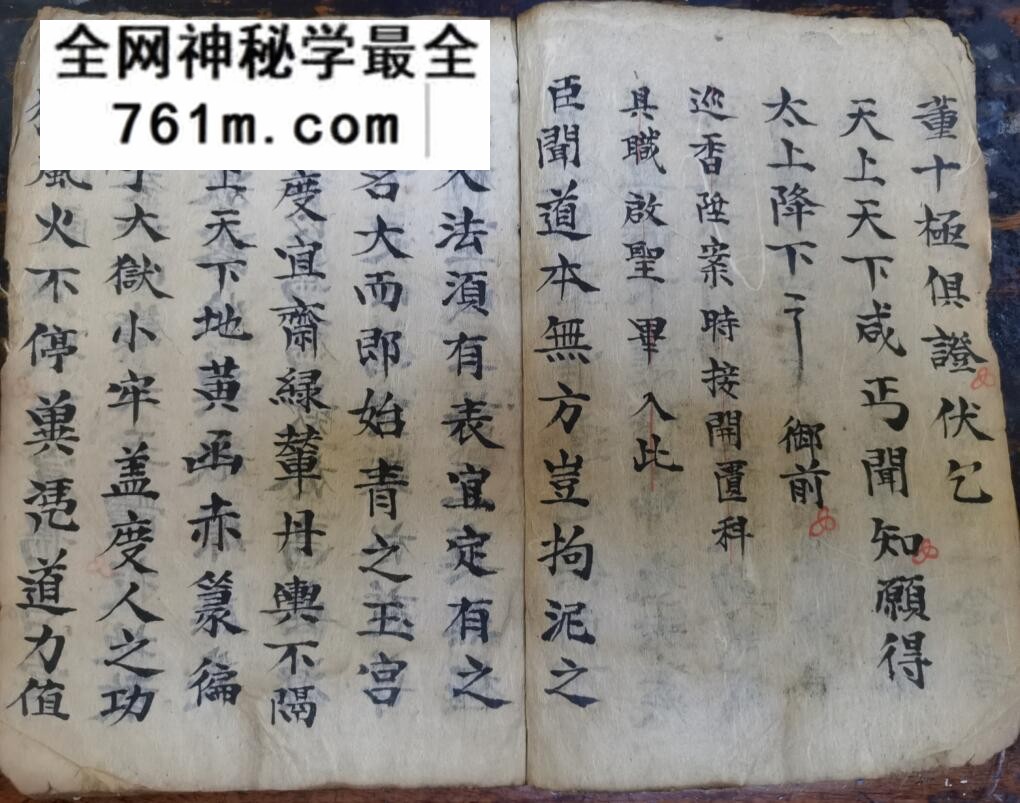 全网神秘学最全
761m.com
董十極俱證伏乞
天上天下咸丐聞知願得
太上降下 御前
巡香陞案時接開置科
具職啟聖畢入此
臣聞道本無方豈拘泥之
法須有表宜定有之
名大而即始青之玉宮
度宜齋綠輦丹輿不隔
上天下地黃函赤篆徧
大獄小牢盖度人之功
風火不停冀憑道力值